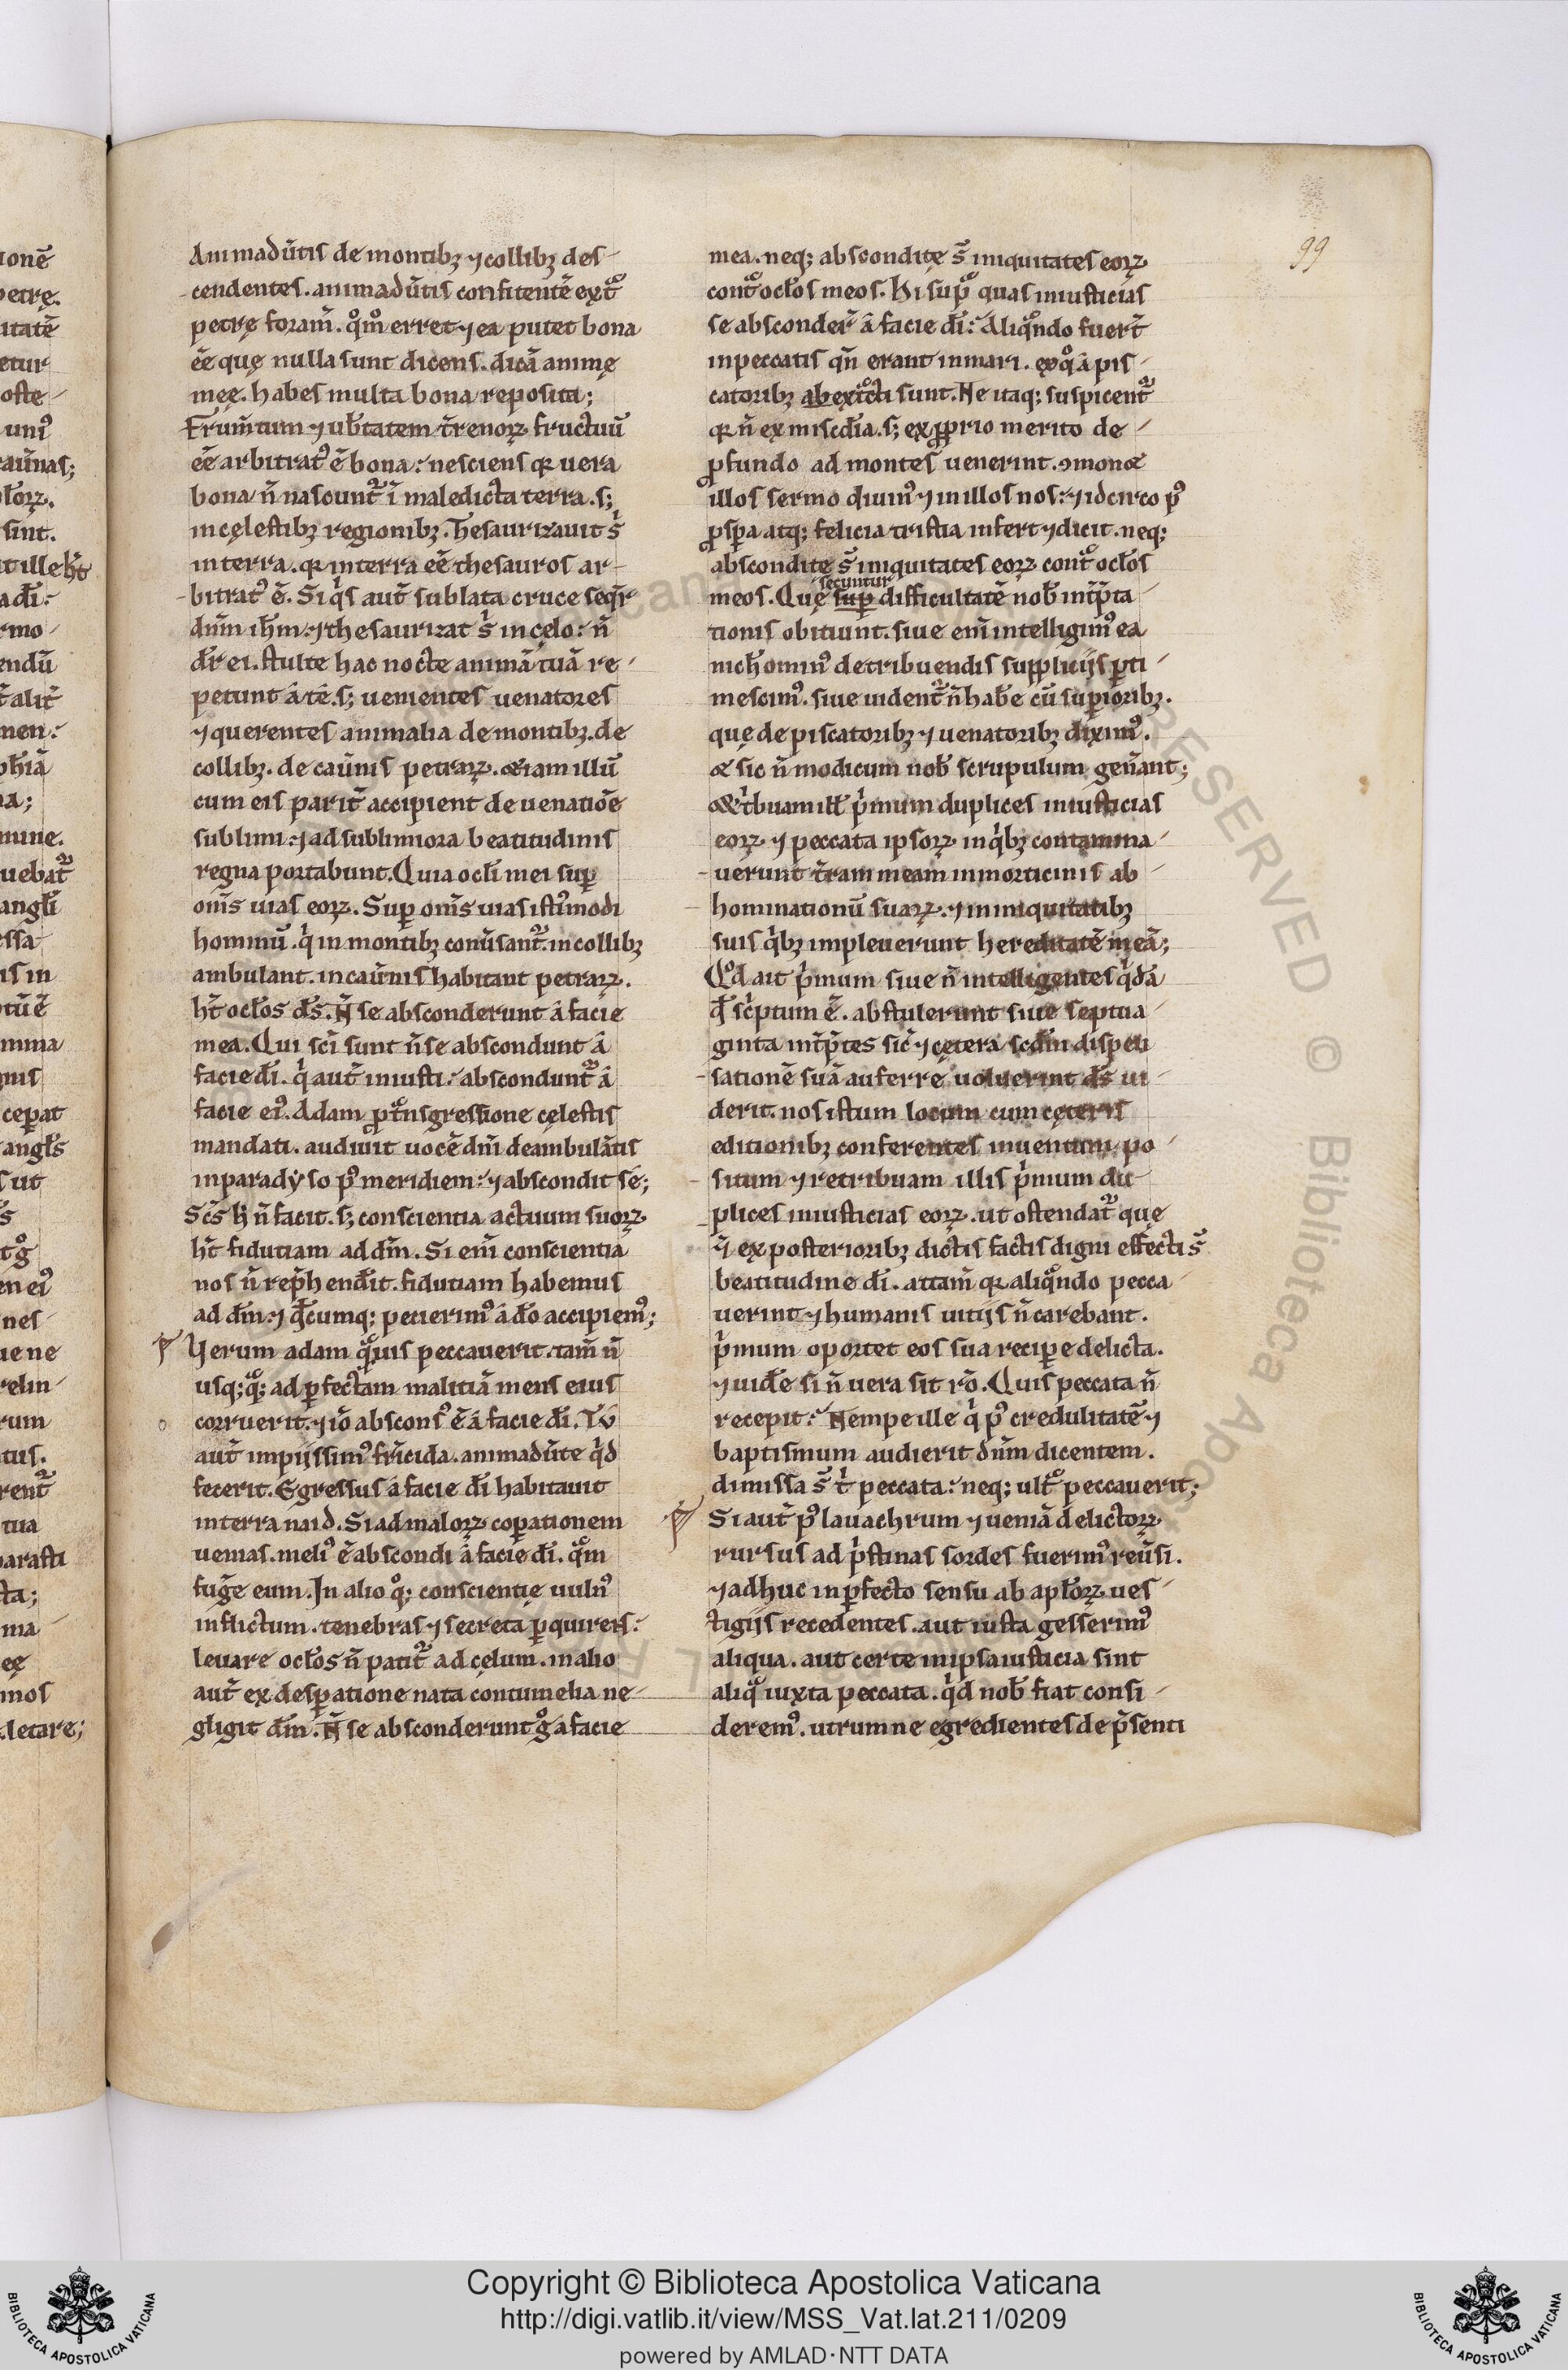 99
Animadũtis de montibꝫ ⁊ collibꝫ des-
cendentes. animadũtis confitentẽ ext͛
petrę foram̃. qͦmͦ erret ⁊ ea putet bona
eẽ quę nulla sunt dicens. dicã animę
meę. habes multa bona reposita;
Frum̃tum ⁊ ub̃tatem t̃renoꝝ fructuũ
eẽ arbitratꝰ ẽ bona: nesciens qꝛ uera
bona ñ nascunt᷑ ĩ maledicta terra. sꝫ
in cęlestibꝫ regionibꝫ. Thesaurizauit sͥ
in terra. qꝛ in terra eẽ thesauros ar-
bitratꝰ ẽ. Si qͥs aut̃ sublata cruce seq̃r
dñm ihm̃: ⁊ thesaurizat sͥ in cęlo: ñ
dr̃ ei. stulte hac nocte animã tuã re-
petunt á té. sꝫ uenientes uenatores
⁊ querentes animalia de montibꝫ. de
collibꝫ. de cau̾nis petraꝝ. etiam illũ
cum eis parit̃ accipient de uenatioẽ
sublimi: ⁊ ad sublimiora beatitudinis
regna portabunt. Quia ocl̃i mei suꝑ
om̃s uias eoꝝ. Suꝑ om̃s uias istiꝰmodi
hominũ. qͥ in montibꝫ conũsant᷑. in collibꝫ
ambulant. in cau̾nis habitant petraꝝ.
ht̃ ocl̃os ds̃. Ñ se absconderunt á facie
mea. Qui sc̃i sunt ñ se abscondunt á
facie dĩ. qͥ aut̃ iniusti: abscondunt᷑ á
facie eiꝰ. Adam ꝑ tͣnsgressione cęlestis
mandati. audiuit uocẽ dm̃ deambulãtis
in paradẏso pꝰ meridiem: ⁊ abscondit sé;
Sc̃s h̾ ñ facit. sꝫ conscientia actuum suoꝝ
ht̃ fidutiam ad dm̃. Si em̃ conscientia
nos ñ rep̃hendit. fidutiam habemus
ad dm̃: ⁊ qd̃cumqꝫ petierimꝰ á dõ accipiemꝰ;
Verum adam qͣuis peccauerit. tam̃ ñ
usqꝫ qͦqꝫ ad ꝑfectam malitiã mens eius
corruerit. ⁊ iõ absconsꝰ ẽ á facie dĩ.
aut̃ impijssimꝰ fr̃icida. animadũte qͥd
fecerit. Egressus á facie dĩ habitauit
in terra naid. Si ad maloꝝ coꝑationem
uenias. meliꝰ ẽ abscondi á facie dĩ. qͣm
fug̃e eum. In alio qͦqꝫ conscientię uulnꝰ
inflictum. tenebras ⁊ secreta ꝑquirens:
leuare ocl̃os ñ patit᷑ ad cęlum. in alio
aut̃ ex desꝑatione nata contumelia ne-
gligit dm̃. Ñ se absconderunt gͦ á facie
mea. neqꝫ absconditę s̃ iniquitates eoꝝ
contͣ ocl̃os meos. Hi suꝑ quas iniusticias
se absconder̃ á facie dĩ: Aliqͣndo fuer̃t
in peccatis qñ erant in mari. ex qͦ á pis-
catoribꝫ abextͣcti sunt. Ne itaqꝫ suspicent᷑
qꝛ ñ ex mis̃cdia. sꝫ ex ꝓprio merito de
ꝓfundo ad montes uenerint. ꝯmonet
illos sermo diuinꝰ ⁊ in illos nos: ⁊ idcirco pꝰ
ꝓsꝑa atqꝫ felicia tristia infert ⁊ dicit. neqꝫ
absconditę s̃ iniquitates eoꝝ contͣ ocl̃os
secuntur
meos. Quę suꝑ difficultatẽ nob̃ int̃p̃ta-
tionis obitiunt. siue em̃ intelligimꝰ ea
nich̃ominꝰ de tribuendis supplicijs ꝑti-
mescimꝰ. siue uident᷑ ñ habe cũ superioribꝫ.
quę de piscatoribꝫ ⁊ uenatoribꝫ diximꝰ.
et sic ñ modicum nob̃ scrupulum gen̾ant;
Et t̾buam ill̃ pͥmum duplices iniusticias
eoꝝ ⁊ peccata ipsoꝝ in qͥbꝫ contamina-
uerunt t̃ram meam in morticinis ab-
hominationũ suaꝝ. ⁊ in iniquitatibꝫ
suis qͥbꝫ impleuerunt hereditatẽ meã;
Qͦd ait pͥmum siue ñ intelligentes qͥdã
qd̃ scͥptum ẽ. abstulerunt siue septua-
ginta int̃p̃tes sic̃ ⁊ cętera scd̃m dispen-
sationẽ suã auferre uoluerint ds̃ ui-
derit. nos istum locum cum cęteris
editionibꝫ conferentes inuentum po-
situm ⁊ retribuam illis pͥmum du-
plices iniusticias eoꝝ. ut ostendat᷑ quę
ex posterioribꝫ dictis factis digni effecti s̃
beatitudine dĩ. attam̃ qꝛ aliqͣndo pecca-
uerint ⁊ humanis uitijs ñ carebant.
pͥmum oportet eos sua reciꝑe delicta.
⁊ uidẽ si ñ uera sit rõ. Quis peccata ñ
recepit: Nempe ille qͥ pꝰ credulitatẽ ⁊
baptismum audierit dñm dicentem.
dimissa s̃ tͥ peccata: neqꝫ ultͣ peccauerit;
Si aut̃ pꝰ lauachrum ⁊ ueniã delictoꝝ
rursus ad pͥstinas sordes fuerimꝰ reũsi.
⁊ adhuc inꝑfecto sensu ab apl̃oꝝ ues-
tigijs recedentes. aut iusta gesserimꝰ
aliqua. aut certe in ipsa iusticia sint
aliqͣ iuxta peccata. qͥd nob̃ fiat consi-
deremꝰ. utrumne egredientes de p̃senti
Copyright © Biblioteca Apostolica Vaticana
http://digi.vatlib.it/view/MSS_Vat.lat.211/0209
powered by AMLAD·NTT DATA
BIBLIOTECA APOSTOLICA VATICANA
BIBLIOTECA APOSTOLICA VATICANA